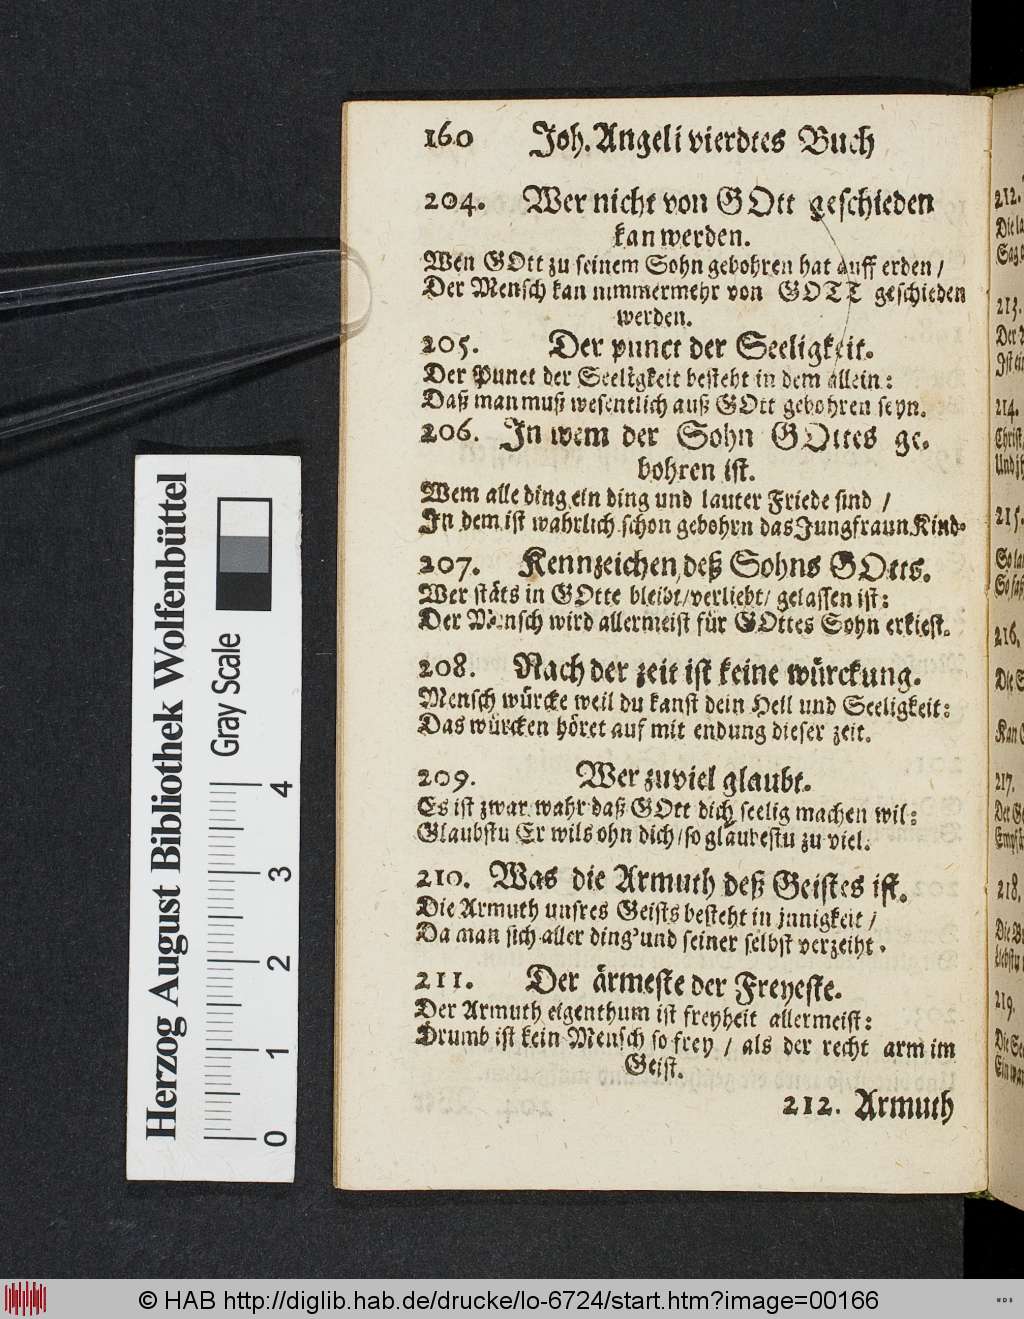 160 Joh. Angeli vierdtes Buch
204. Wer nicht von GOtt geschieden
kan werden.
Wen GOtt zu seinem Sohn gebohren hat auff erden /
Der Mensch kan nimmermehr von GOTT geschieden
werden.
205. Der punct der Seeligkeit.
Der Punct der Seeligkeit besteht in dem allein:
Daß man muß wesentlich auß GOtt gebohren seyn.
206. In wem der Sohn GOttes ge-
bohren ist.
Wem alle ding ein ding und lauter Friede sind /
In dem ist wahrlich schon gebohrn das Jungfraun Kind.
207. Kennzeichen deß Sohns GOtts.
Wer stäts in GOtte bleibt / verliebt / gelassen ist:
Der Mensch wird allermeist für GOttes Sohn erkiest.
208. Nach der zeit ist keine würckung.
Mensch würcke weil du kanst dein Heil und Seeligkeit:
Das würcken höret auf mit endung dieser zeit.
209. Wer zuviel glaubt.
Es ist zwar wahr daß GOtt dich seelig machen wil:
Glaubstu Er wils ohn dich / so gläubestu zu viel.
210. Was die Armuth deß Geistes ist.
Die Armuth unsres Geists besteht in jnnigkeit /
Da man sich aller ding' und seiner selbst verzeiht.
211. Der ärmeste der Freyeste.
Der Armuth eigenthum ist freyheit allermeist:
Drumb ist kein Mensch so frey / als der recht arm im
Geist.
212. Armuth
212.
213.
214.
Christ
215.
216.
217.
218.
219.
Herzog August Bibliothek Wolfenbüttel
Gray Scale
0 1 2 3 4
© HAB http://diglib.hab.de/drucke/lo-6724/start.htm?image=00166